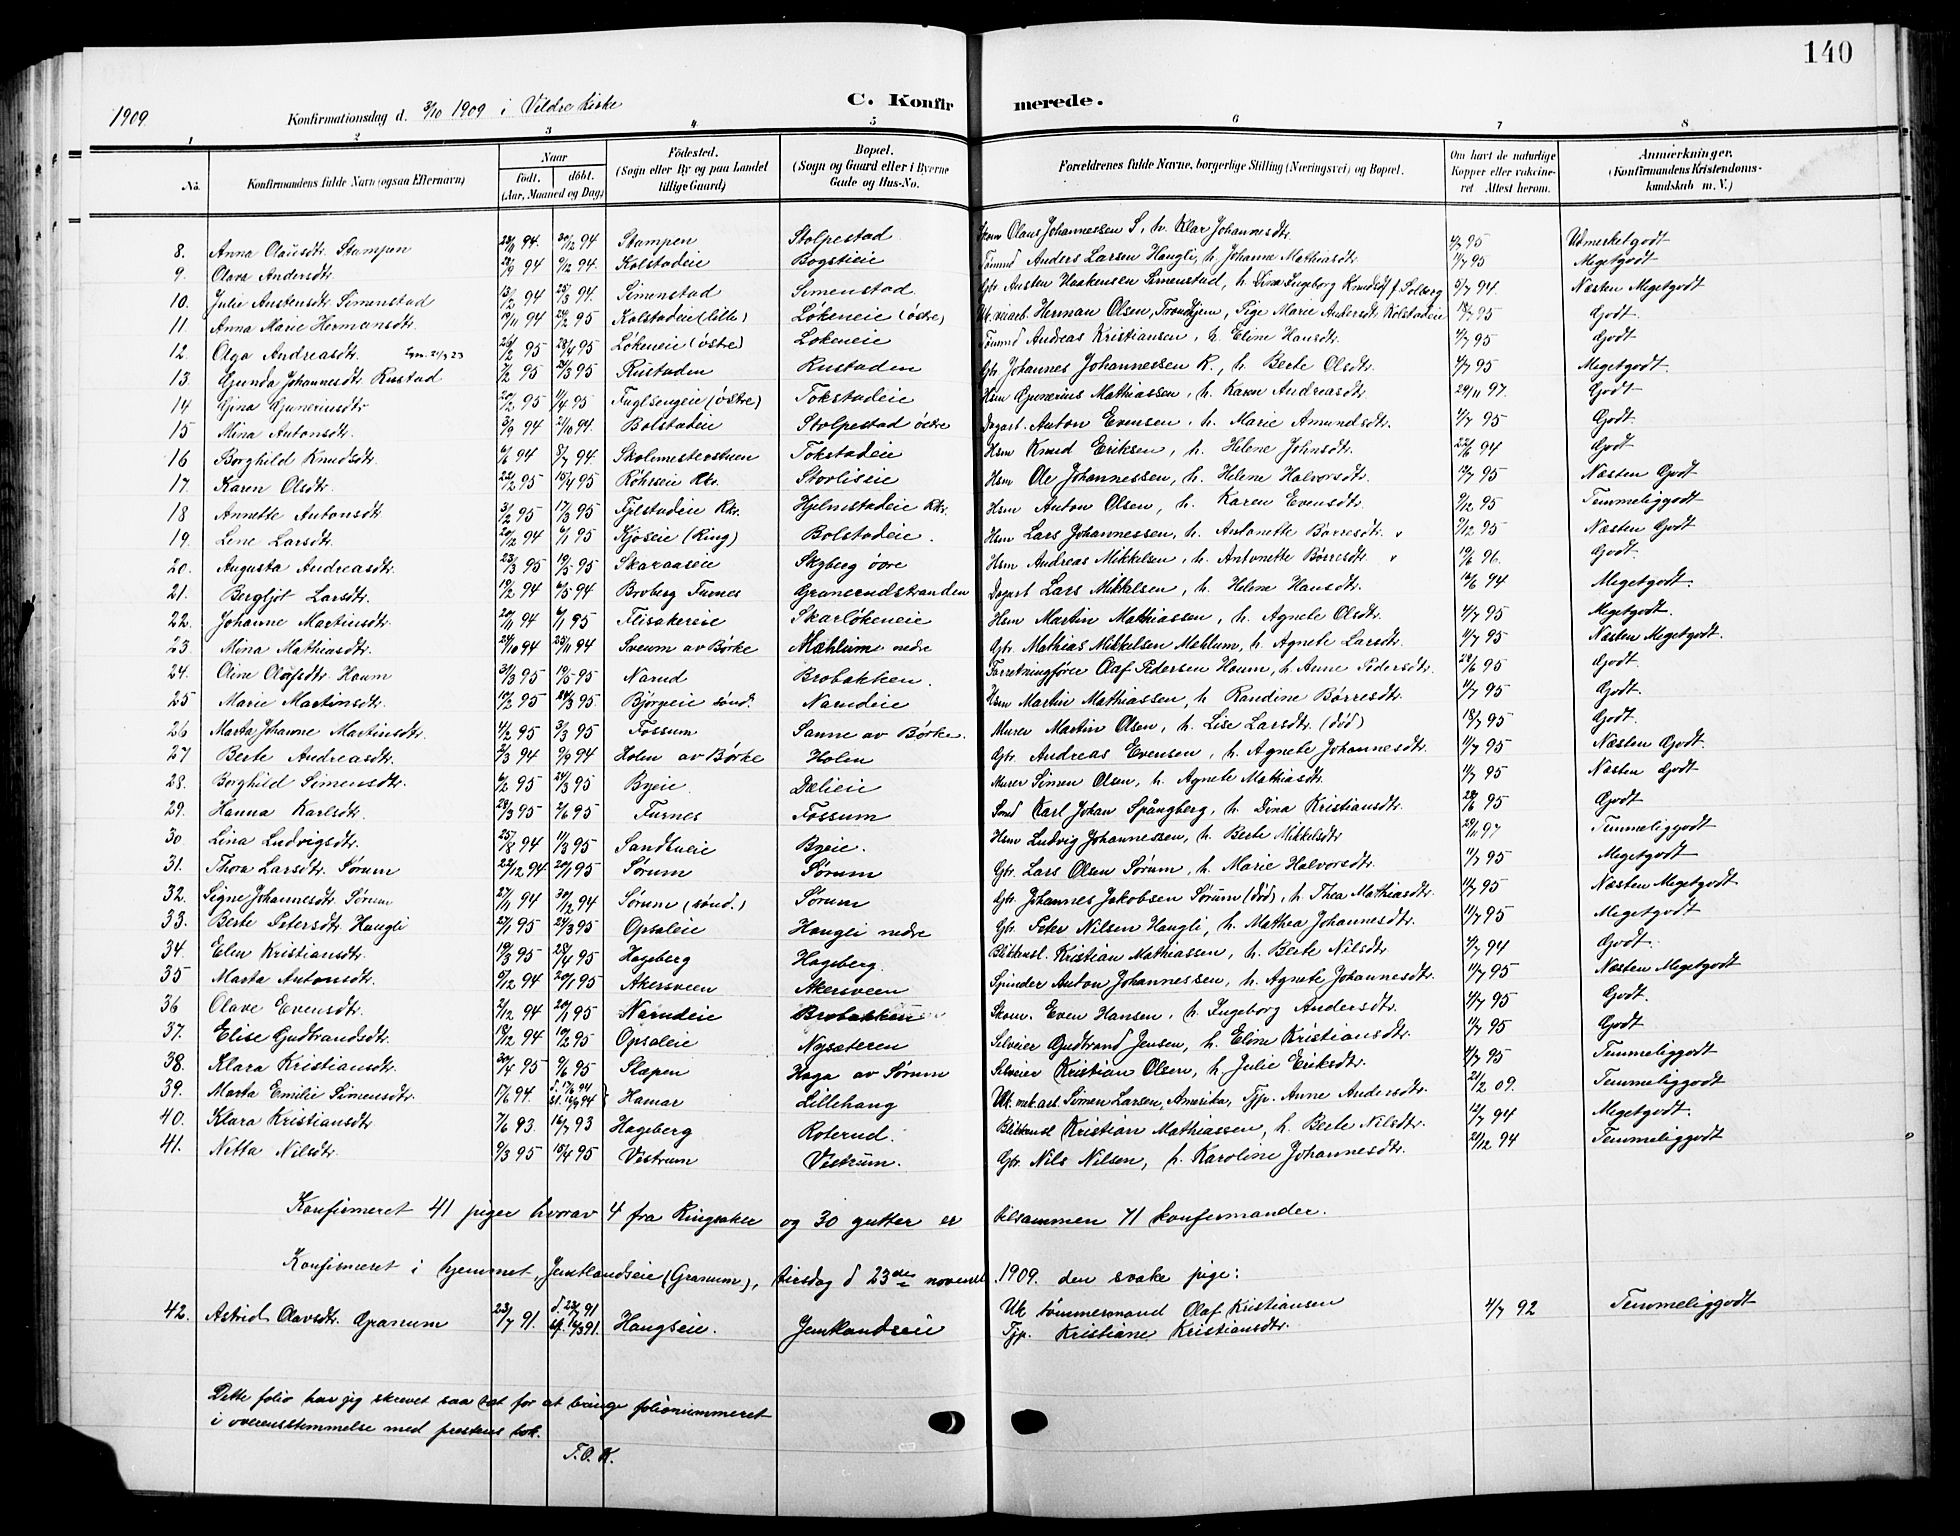 140
1909 Konfirmationsdag d. 3/10 1909 i Veldre kirke C. Konfirmerede.
1 2 3 4 5 6 7 8
No. Konfirmandens fulde Navn (ogsaa Efternavn) Naar født. døbt. (Aar, Maaned og Dag) Fødested. (Sogn eller By og paa Landet tillige Gaard) Bopæl. (Sogn og Gaard eller i Byerne Gade og Hus-No. Forældrenes fulde Navne, borgerlige Stilling (Næringsvei) og Bopæl. Om havt de naturlige Kopper eller vaccineret Attest herom. Anmerkninger. (Konfirmandens Kristendomskundskab m. V.)
8. Anna Olausdtr. Stampen 94. 30/12 94 Stampen Stolpestad Skom Olaus Johannessen S, h. Klar Johannesdtr. 4/7 95 Udmerketgodt
9. Olava Andersdtr. 28/9 94 9/12 94. Kolstadeie Bogstieie Tømmd Anders Larsen Haugli, h. Johanne Mathiasdtr. 11/7 95 Megetgodt
10. Julie Austensdtr Simenstad 13/2 94 25/3 94. Simenstad Simenstad Gbr Austen Haakensen Simenstad, h. Dina Ingeborg Knudsdtr f. Solberg 5/7 94. Næsten Megetgodt
11. Anna Marie Hermansdtr. 19/11 94 24/2 95 Kolstadeie (lille) Løkeneie (østre) Uk. miarb. Herman Olsen, Trondhjem, Pige Marie Andersdtr. Kolstadeie 12/7 95 Godt
12. Olga Andreasdtr. 26/2 95 28/4 95 Løkeneie (østre) Løkeneie Tømmd Andreas Kristiansen, h. Eline Hansdtr. 4/7 95 Godt
13. Gunda Johannesdtr. Rustad 7/2 95 31/3 95 Rustaden Rustaden Gbr Johannes Johannessen R., h. Berte Olsdtr. 4/7 95 Megetgodt
14 Gina Guneriusdtr 20/2 95 11/4 95 Fuglsengeie (østre) Tokstadeie Hsm Gunerius Mathiassen, h. Karen Andreasdtr. 29/11 97. Godt
15 Mina Antonsdtr. 3/9 94 21/10 94. Bolstadeie Stolpestad østre Dagarb. Anton Evensen, h. Marie Amundsdtr. 4/7 95 Godt.
16 Borghild Knudsdtr. 6/6 94 8/7 94. Skolmesterstuen Tokstadeie Hsm Knud Eriksen, h. Helene Johnsdtr. 22/6 94 Godt
17. Karen Olsdtr. 22/2 95 15/4 95 Røhrseie Rkr. Storliseie Hsm Ole Johannessen, h. Helene Halvorsdtr. 12/7 95 Næsten Godt
18 Annette Antonsdtr. 3/2 95 17/3 95 Fjelstadeie Rkr. Hjelmstadeie Rkr. Hsm Anton Olsen, h. Karen Evensdtr. 9/12 95 Temmeliggodt
19. Line Larsdtr. 20/12 94 6/1 95 Kjoseie (Ring) Bolstadeie. Hsm Lars Johannessen, h. Antonette Børresdtr. " 9/12 95 Næsten Godt
20. Augusta Andreasdtr. 23/3 95 19/5 95 Skaraaseie Skyberg øvre Hsm Andreas Mikkelsen, h. Antonette Børresdtr. " 19/6 96. Godt.
21. Bergljot Larsdtr. 19/2 94 6/5 94 Broberg Furnes Granerudstranden Dagarb Lars Mikkelsen, h. Helene Hansdtr. 16/6 94 Megetgodt.
22. Johanne Martinsdtr. 20/11 94 6/1 95 Flisakereie Skarløkeneie Hsm Martin Mathiassen, h. Agnete Olsdtr. 4/7 95 Megetgodt.
23 Mina Mathiasdtr. 24/10 94 25/11 94 Sveum av Børke Mæhlum nedre Gbr. Mathias Mikkelsen Mehlum, h. Agnete Larsdtr. 11/7 95 Næsten Megetgodt.
24. Oline Olafsdtr. Houm 31/3 95 19/5 95 Narud Brobakken. Forretningfører Olaf Pedersen Houm, h. Anne Pedersdtr. 28/6 95 Godt.
25 Marie Martinsdtr. 10/2 95 24/3 95 Bjørgeie sønd. Narudeie Hsm Martin Mathiassen, h. Randine Børresdtr. 11/7 95 Godt
26 Marta Johanne Martinsdtr. 4/2 95 3/3 95 Fossum Sanne av Børke. Murer Martin Olsen, h. Lise Larsdtr. (død) 18/7 95 Godt.
27 Berte Andreasdtr. 2/3 94 9/9 94 Holen av Børke Holen Gbr. Andreas Evensen, h. Agnete Johannesdtr. 11/7 95 Næsten Godt
28. Borghild Simensdtr. 6/2 95 24/3 95 Byeie. Dælieie Murer Simen Olsen, h. Agnete Mathiasdtr. 11/7 95 Næsten Godt
29. Hanna Karlsdtr. 28/3 95 2/6 95 Furnes Fossum Smd Karl Johan Spångberg, h. Dina Kristiansdtr. 28/6 95 Godt
30 Lina Ludvigsdtr. 25/8 94 11/3 95 Sandtueie Byeie. Hsm Ludvig Johannessen, h. Berte Mikkelsdtr 29/11 97 Temmeliggodt
31. Thora Larsdtr. Sørum 22/12 94 20/1 95 Sørum Sørum Gbr. Lars Olsen Sørum, h. Marie Halvorsdtr. 11/7 95 Megetgodt
32. Signe Johannesdtr. Sørum 27/11 94 30/12 94 Sørum (sønd.) Sørum Gbr. Johannes Jakobsen Sørum (død), h. Thea Mathiasdtr. 11/7 95 Næsten Megetgodt
33. Berte Petersdtr. Haugli 27/1 95 24/3 95 Opsaleie Haugli nedre Gbr. Peter Nilsen Haugli, h. Mathea Johannesdtr. 11/7 95 Megetgodt
34. Elen Kristiansdtr. 19/3 95 28/4 95 Hageberg Hageberg. Blikkensl. Kristian Mathiassen, h. Berte Nilsdtr 7/7 94 Godt.
35 Marta Antonsdtr. 9/12 94 20/1 95 Akersveen Akersveen Spinder Anton Johannessen, h. Agnete Johannesdtr. 11/7 95 Næsten Megetgodt
36 Olave Evensdtr. 2/12 94 20/1 95 Narudeie Brobakken Skom. Even Hansen, h. Ingeborg Andersdtr. 4/7 95 Godt.
37. Elise Gudbrandsdtr. 18/12 94 10/2 95 Opsaleie Nysæteren Selveier Gudbrand Jensen, h. Eline Kristiansdtr. 11/7 95 Godt
38. Klara Kristiansdtr. 20/4 95 9/6 95 Slæpen Haga av Sørum Selveier Kristian Olsen, h. Julie Eriksdtr. 4/7 95 Temmeliggodt
39. Marta Emilie Simensdtr. 17/6 94. d. 17/6 94 Hamar Lillehaug Uk. mek. arb. Simen Larsen, Amerika, Tjp. Anne Andersdtr. 21/2 09. Temmeliggodt
40. Klara Kristiansdtr 7/6 93. 16/7 93 Hageberg Roterud. Blikkensl Kristian Mathiassen, h. Berte Nilsdtr. 12/7 94 Megetgodt.
41. Netta Nilsdtr. 9/3 95 15/4 95 Vestrum Vestrum. Gbr. Nils Nilsen, h. Karoline Johannesdtr. 21/12 94 Temmeliggodt
Konfirmeret 41 piger hvorav 4 fra Ringsaker og 30 gutter er tilsammen 71 konfirmander.
Konfirmeret i hjemmet, Jemtlandseie (Granum), tirsdag d 23des novemb. 1909. den svake pige:
42. Astrid Olavsdtr. Granum 23/7 91. d. 23/7 91 Haugseie. Jemtlandseie Uk tømmermand Olaf Kristiansen 4/7 92 Temmeliggodt
Tjp. Kristiane Kristiansdtr.
Dette folio har jeg skrevet saa tæt for at bringe folionummeret
i overensstemmelse med prestens bok.
T.O.K.